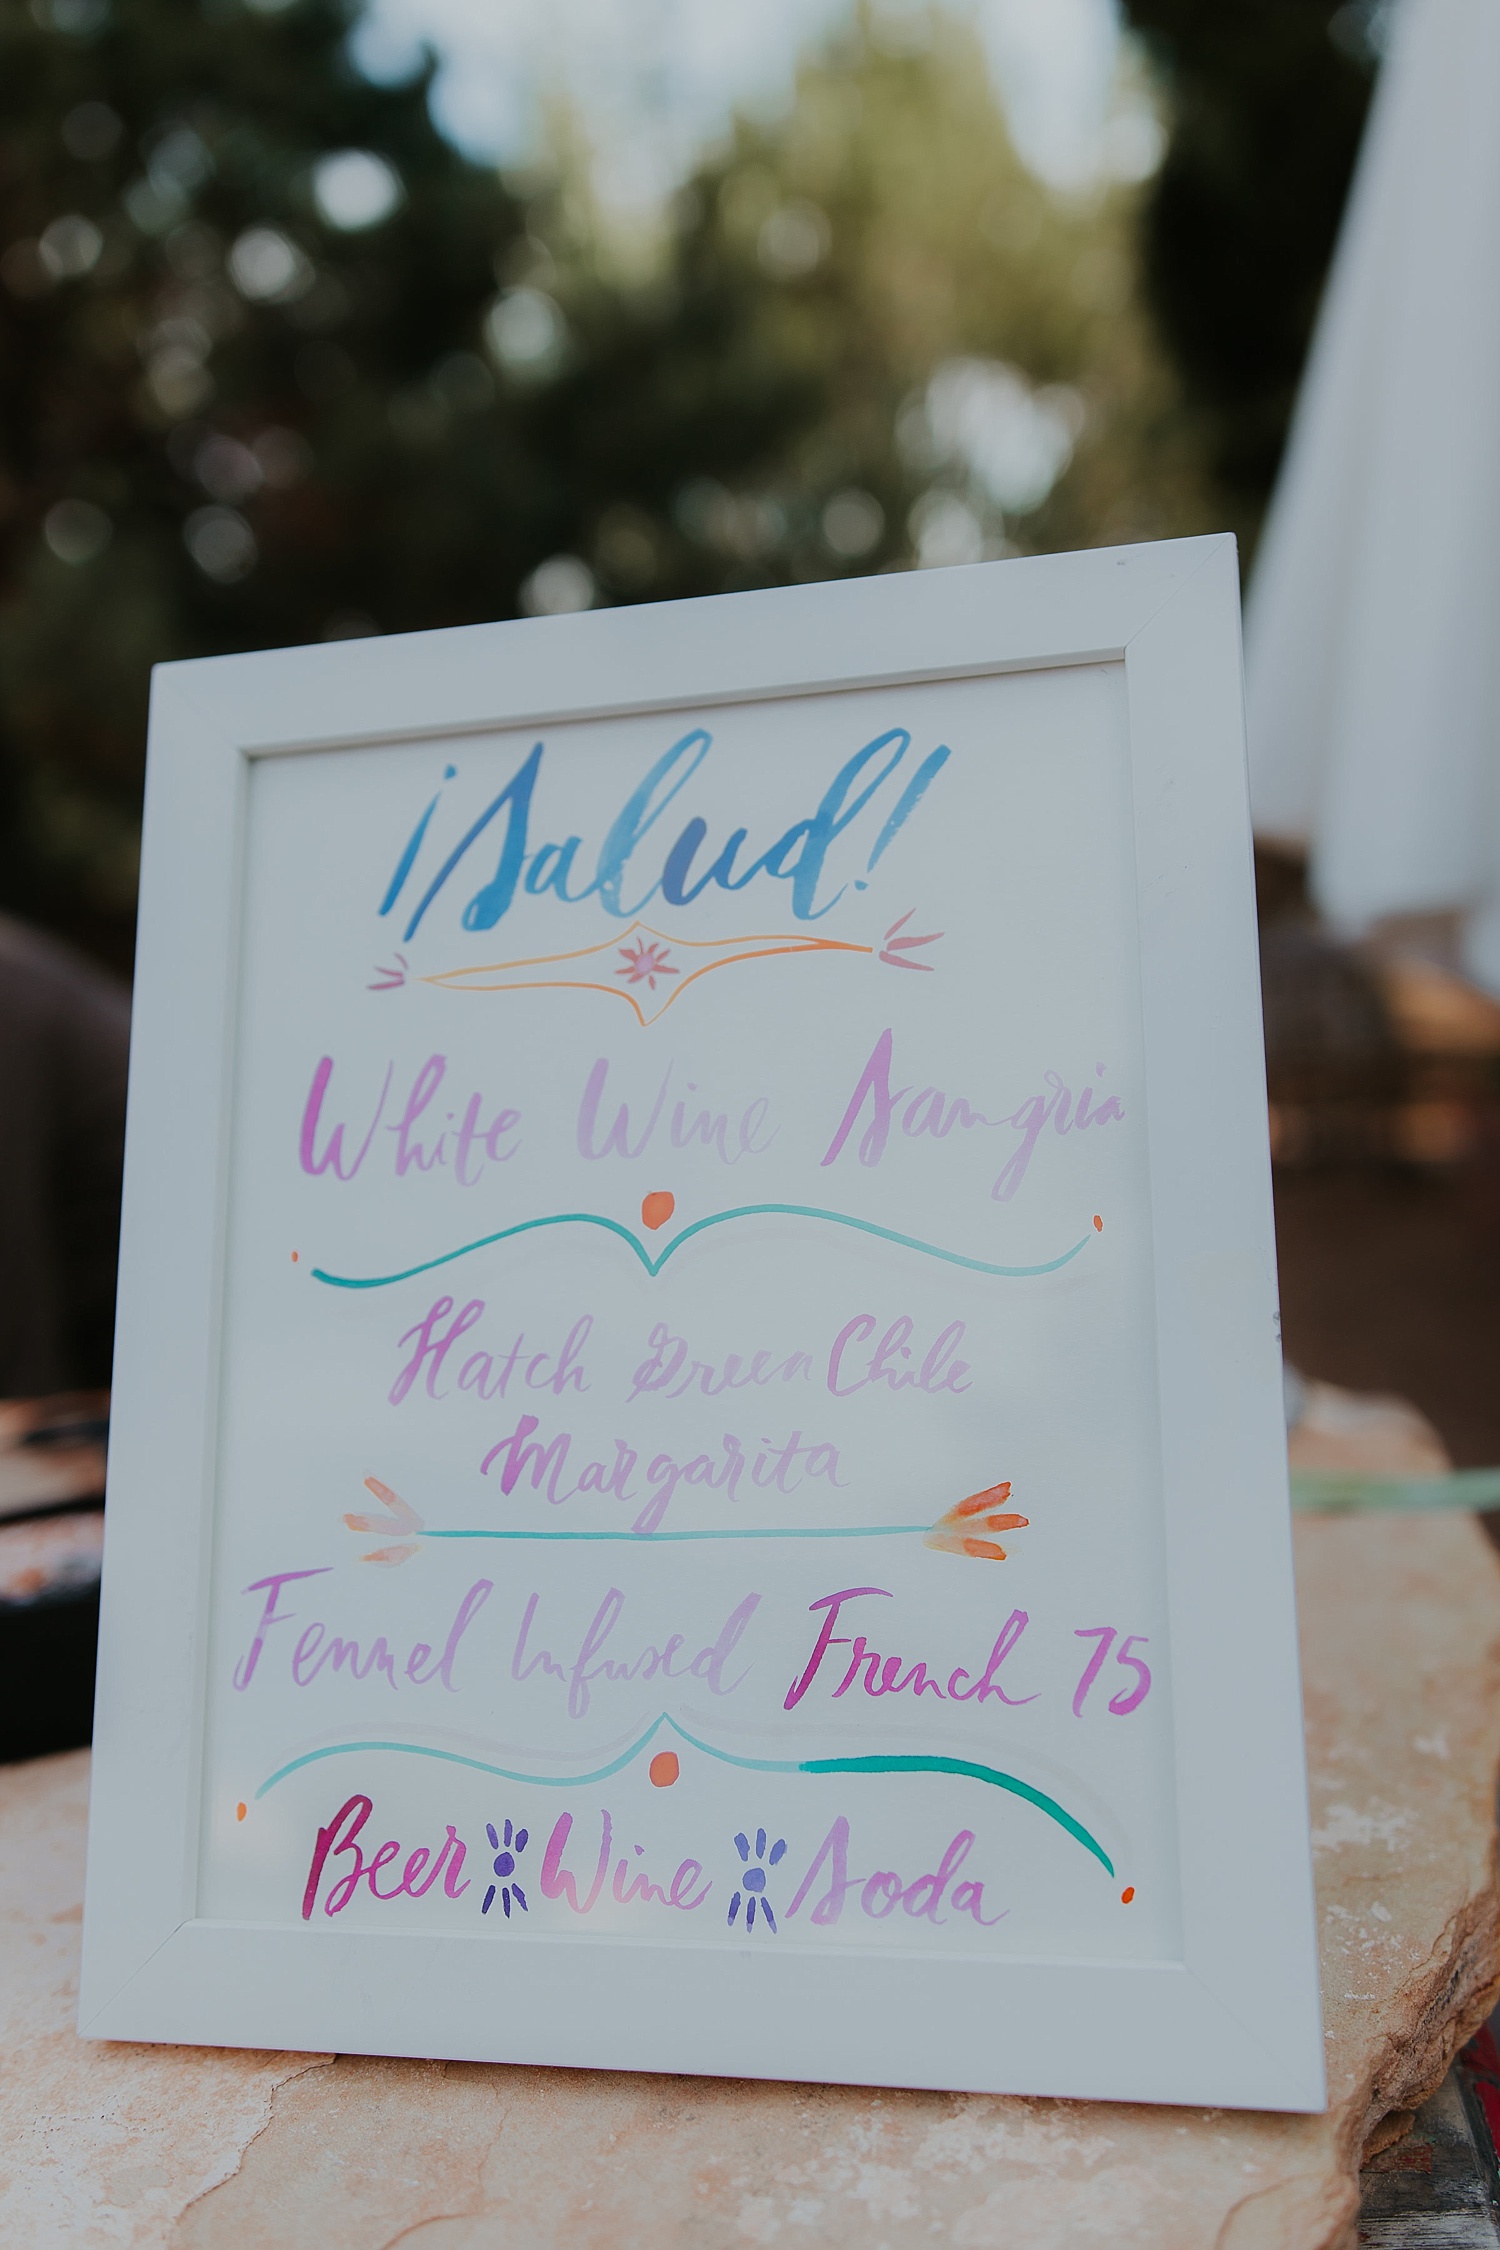 ¡Salud!
White Wine Sangria
Hatch Green Chile
Margarita
Fennel Infused French 75
Beer Wine Soda